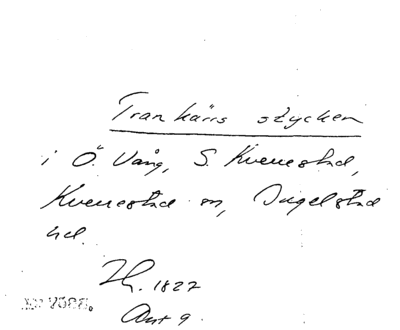 Trankärrs stycken
i Ö. Vång, S. Kvenestad,
Kvenestad sn, Ingelstad
hd.
Zh. 1827
Akt 9.